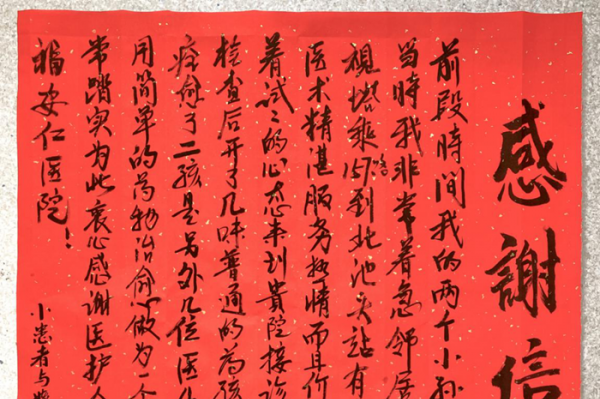 感謝信
前段時间我的两个小孙
当時我非常着急邻居
視塔乘157路到北池头站有
医术精湛服务热情而且价
着试二的心态来到貴院接诊
检查后开了几味普通的药孩
痊愈了二孩是另外几位医
用简单的药物治愈做为一个
常踏实为此衷心感谢医护人
福安仁医院！
小患者与